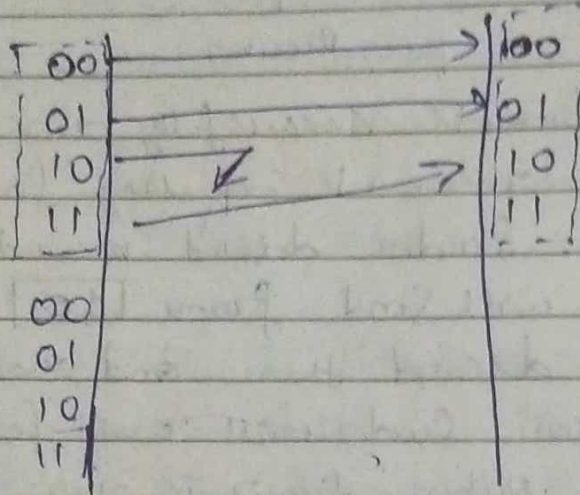 00 00
01 01
10 10
11 11
00
01
10
11